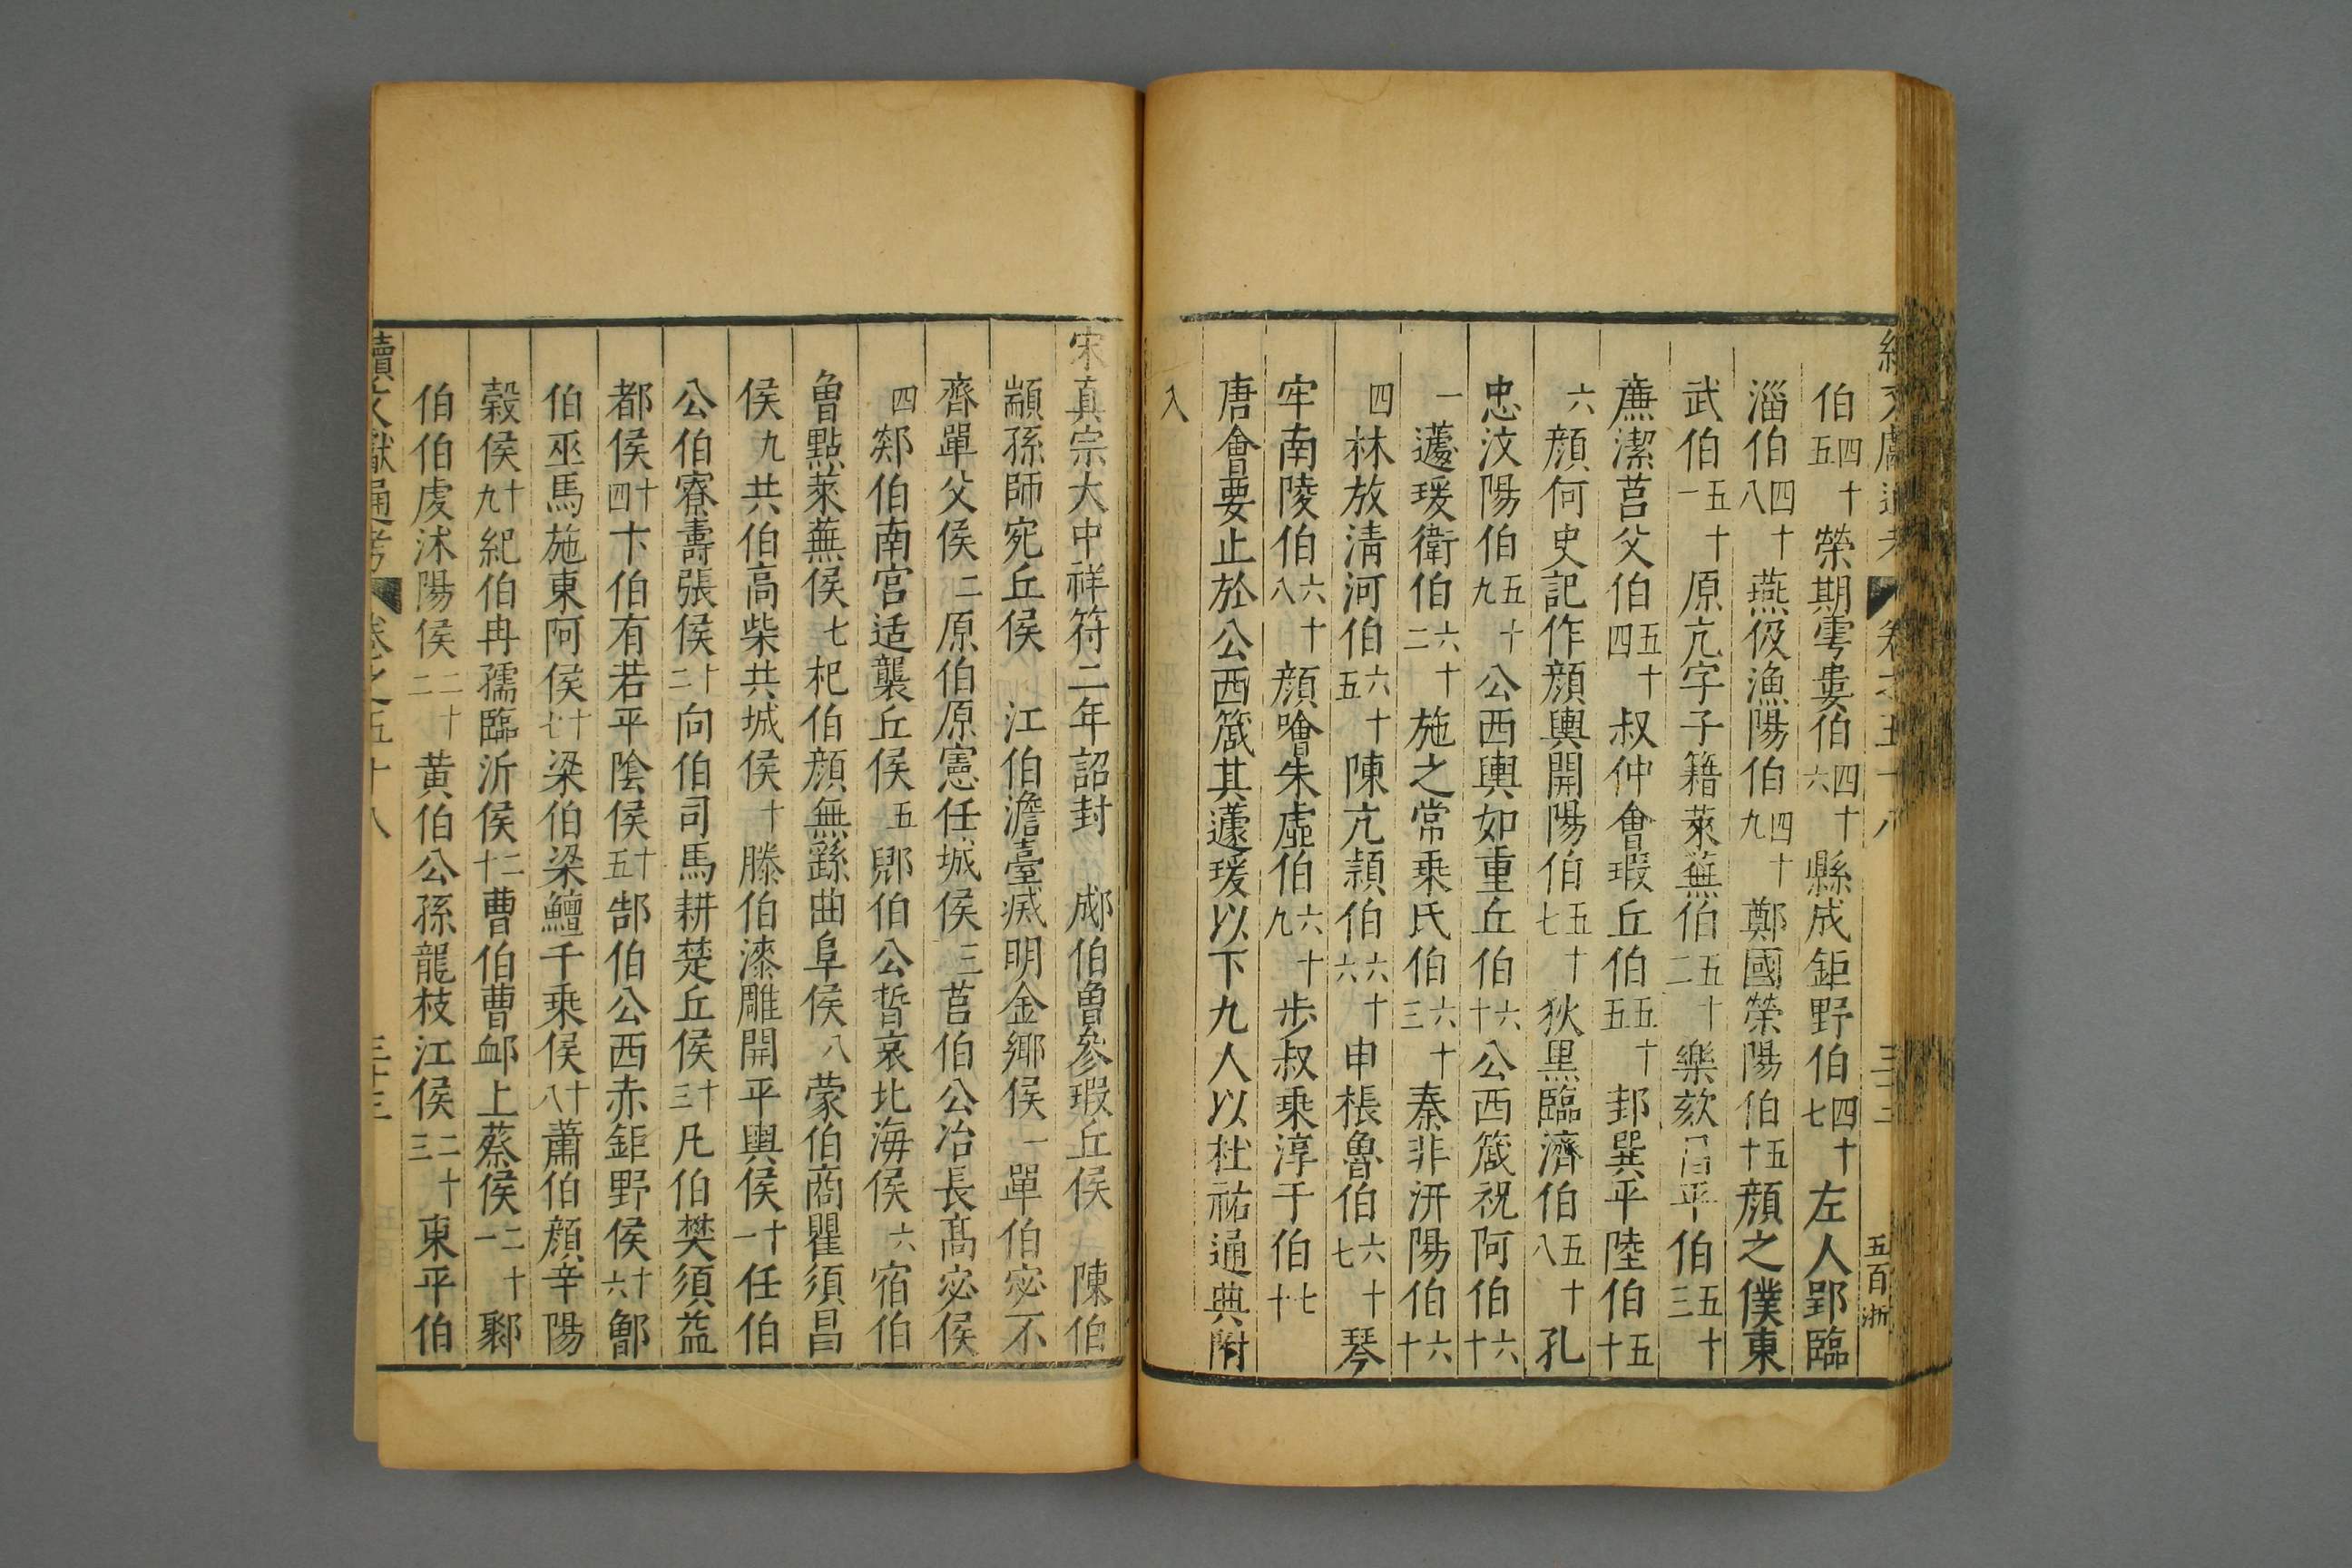 文獻通考 卷之五十八 五百浙
伯四十五榮期雩婁伯四十六縣成鉅野伯四十七左人郢臨
淄伯四十八燕伋漁陽伯四十九鄭國榮陽伯五十顏之僕東
武伯五十一原亢字子籍萊蕪伯五十二樂欬昌平伯五十三
亷潔莒父伯五十四叔仲會瑕丘伯五十五邽巽平陸伯五十
六顏何史記作顏輿開陽伯五十七狄黑臨濟伯五十八孔
忠汶陽伯五十九公西輿如重丘伯六十公西箴祝阿伯六十
一蘧瑗衛伯六十二施之常乗氏伯六十三秦非汧陽伯六十
四林放清河伯六十五陳亢頴伯六十六申棖魯伯六十七琴
牢南陵伯六十八顏噲朱虛伯六十九步叔乗淳于伯七十
唐會要止於公西箴其蘧瑗以下九人以杜祐通典附
入
宋真宗大中祥符二年詔封郕伯曾參瑕丘侯陳伯
顓孫師宛丘侯江伯澹臺滅明金鄉侯一單伯宓不
齊單父侯二原伯原憲任城侯三莒伯公冶長髙宓侯
四郯伯南宮适襲丘侯五郳伯公晳哀北海侯六宿伯
曾點萊蕪侯七杞伯顏無繇曲阜侯八蒙伯商瞿須昌
侯九共伯高柴共城侯十滕伯漆雕開平輿侯十一任伯
公伯寮壽張侯十二向伯司馬耕楚丘侯十三凡伯樊須益
都侯十四卞伯有若平陰侯十五郜伯公西赤鉅野侯十六鄫
伯巫馬施東阿侯十七梁伯梁鱣千乗侯十八蕭伯顏辛陽
榖侯十九紀伯冉孺臨沂侯二十曹伯曹䘏上蔡侯二十一鄹
伯伯虔沭陽侯二十二黃伯公孫龍枝江侯二十三東平伯
續文獻通考 卷之五十八 三十三